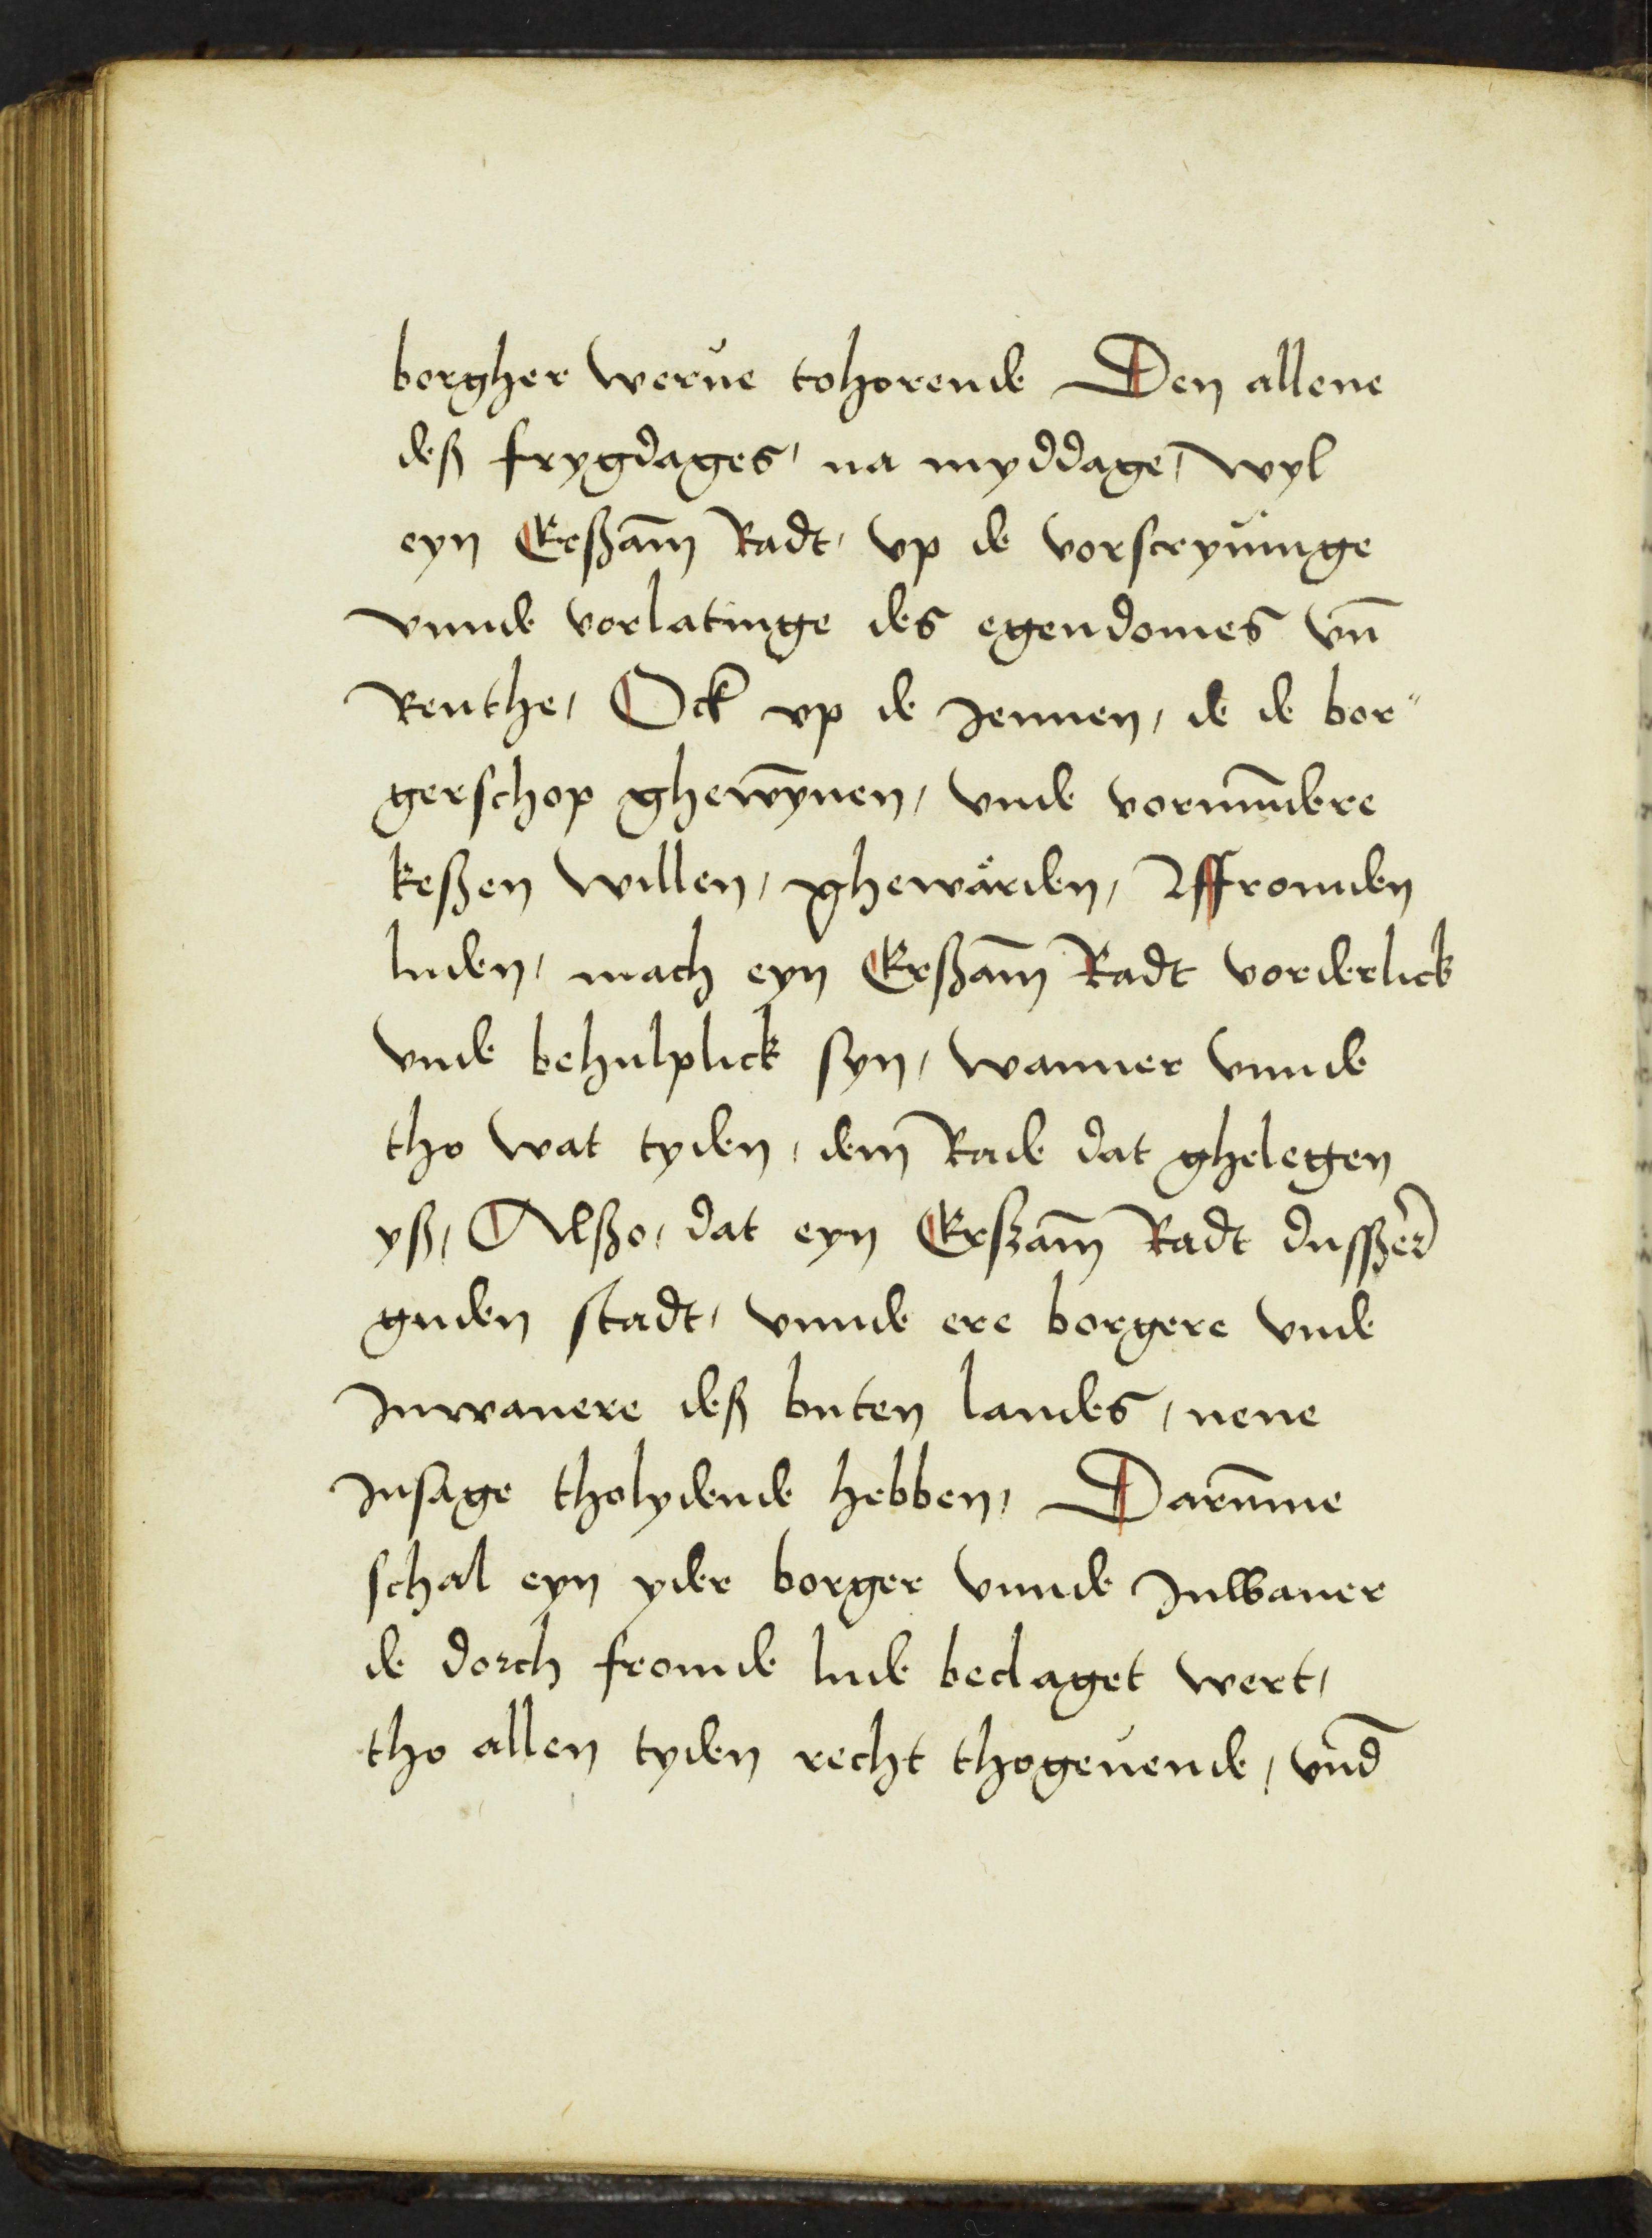 borgher werue tohorende Den allene
deß frygdages, na myddage, wyl
eyn Erßam̄ Radt, vp de vorscryuinge
vnnde vorlatinge des egendomes vn̄
Renthe, Ock vp de Jennen, de de bor"
gerschop ghew̄ynen, vnde vormu̅dere
keßen willen, ghewården, Ffromden
luden, mach eyn Erßam̄ Radt vorderlick
vnde behulplick syn, wanner vnnde
tho wat tyden, dem Rade dat ghelegen
yß, Alßo, dat eyn Erßam̄ Radt dusßer̄
guden stadt, vnnde ere borgere vnde
Jnwanere deß buten landes, nene
Jnsage tholydende hebben, Daru̅me
schal eyn yder borger vnnde Jnwaner
de dorch fromde lude beclaget wert,
tho allen tyden recht thogeuende, vnd̄